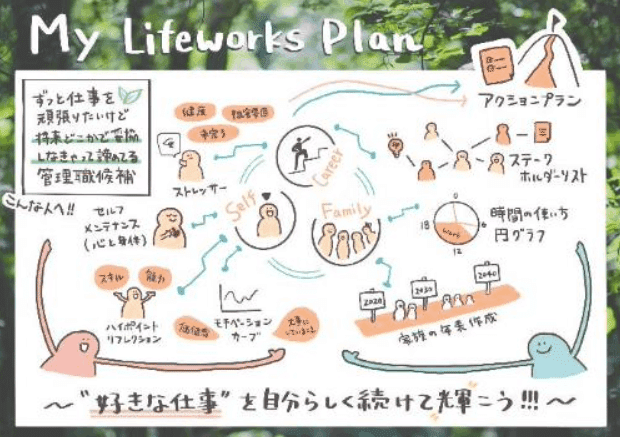 My Lifeworks Plan
アクションプラン
ずっと仕事を
頑張りたいけど
将来どこかで妥協
しなきゃって諦めてる
管理職候補
こんな人へ!!
健康
職場環境
ストレッサー
Career
Self
Family
ステーク
ホルダーリスト
セルフ
メンテナンス
(心と身体)
0
18
6
12
Work
時間の使い方
円グラフ
スキル
能力
ハイポイント
リフレクション
価値観
大事に
していること
モチベーション
カーブ
2020
2030
2040
家族の年表作成
～"好きな仕事"を自分らしく続けて輝こう!!!～